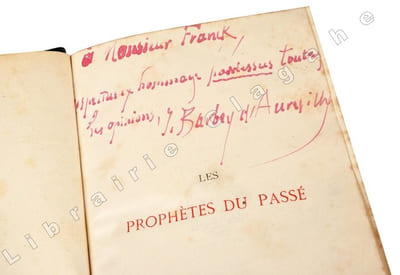 à Monsieur Franck,
respectueux hommage pardessus toutes
les opinions, J. Barbey d'Aurevilly
LES
PROPHÈTES DU PASSÉ
Librairie Lagarde